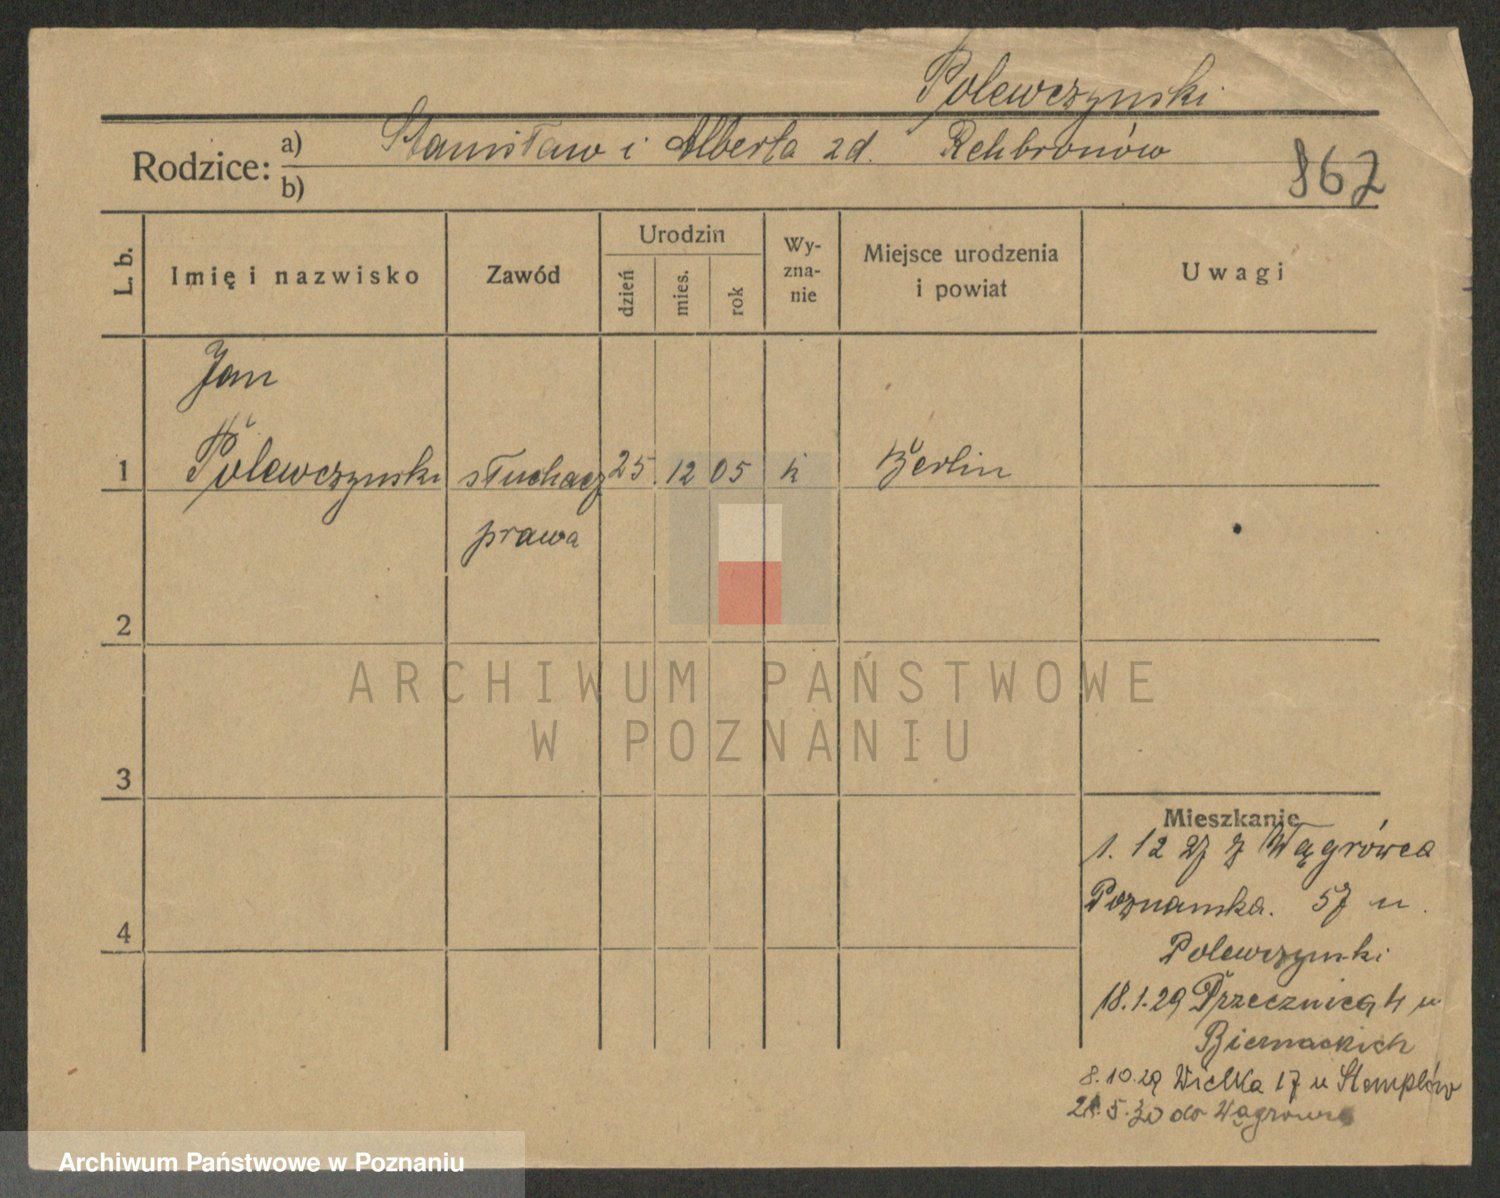 Polewczynski
Rodzice: a) Stanisław i Alberta zd. Rehbronów
b)
867
L. b. Imię i nazwisko Zawód Urodzin dzień mies. rok Wy-zna-nie Miejsce urodzenia i powiat Uwagi
Jan
1 Polewczynski słuchacz 25. 12 05 k Berlin
prawa
2
ARCHIWUM PAŃSTWOWE
W POZNANIU
3
Mieszkanie
1. 12 27 z Wągrówca
Poznanska. 57 u.
4
Polewczynski
18.1.29 Przecznica 4 u
Biernackich
8.10.29 Wielka 17 u Stemplów
5.30 do Wągrowca
Archiwum Państwowe w Poznaniu